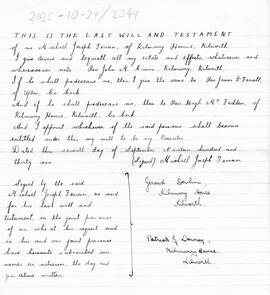 2025-10-29/2349
THIS IS THE LAST WILL AND TESTAMENT
of me Michael Joseph of Kilmurry House, Kilworth.
I give devise and bequeath all my estate and effects whatsoever and
wheresoever unto Rev John A. Kilmurry, Kilworth.
If he shall predecease me, then I give the same to Rev James
of Co. Cork
And if he shall predecease me, then to Rev Hugh McFadden, of
Kilmurry House, Kilworth, Co. Cork
And I appoint whichever of the said persons shall become
entitled under this my will to be my Executor.
Dated this seventh day of September nineteen hundred and
thirty six (Signed) Michael Joseph
Signed by the said
Michael Joseph as and
for his last will and
testament, in the joint presence
of us, who at his request and
in his and our joint presence
have hereunto subscribed our
names as witnesses, the day and
year above written.
Gerard
Kilmurry House
Kilworth
Patrick J.
Kilmurry House,
Kilworth